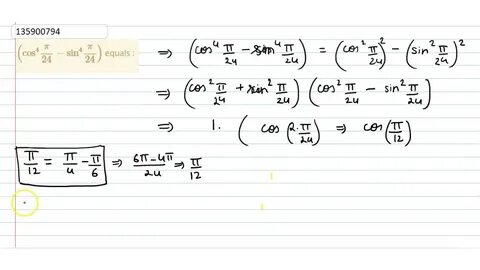 135900794
(cos⁴ π/24 − sin⁴ π/24) equals :
⇒ (cos⁴ π/24 − sin⁴ π/24) = (cos² π/24)² − (sin² π/24)²
⇒ (cos² π/24 + sin² π/24) (cos² π/24 − sin² π/24)
⇒ 1. (cos(2·π/24) ⇒ cos(π/12)
π/12 = π/4 − π/6 ⇒ 6π−4π/24 ⇒ π/12